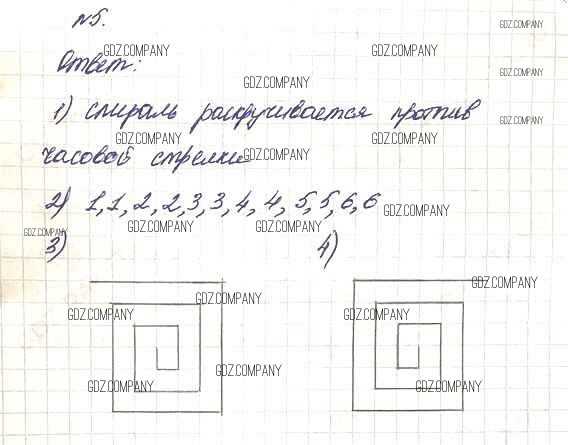 №5.
GDZ.COMPANY
GDZ.COMPANY GDZ.COMPANY
Ответ:
GDZ.COMPANY
GDZ.COMPANY
1) спираль раскручивается против
GDZ.COMPANY
GDZ.COMPANY GDZ.COMPANY
часовой стрелки
GDZ.COMPANY
2) 1,1,2,2,3,3,4,4,5,5,6,6
GDZ.COMPANY
GDZ.COMPANY GDZ.COMPANY GDZ.COMPANY
3) 4)
GDZ.COMPANY
GDZ.COMPANY
GDZ.COMPANY GDZ.COMPANY
GDZ.COMPANY
GDZ.COMPANY GDZ.COMPANY